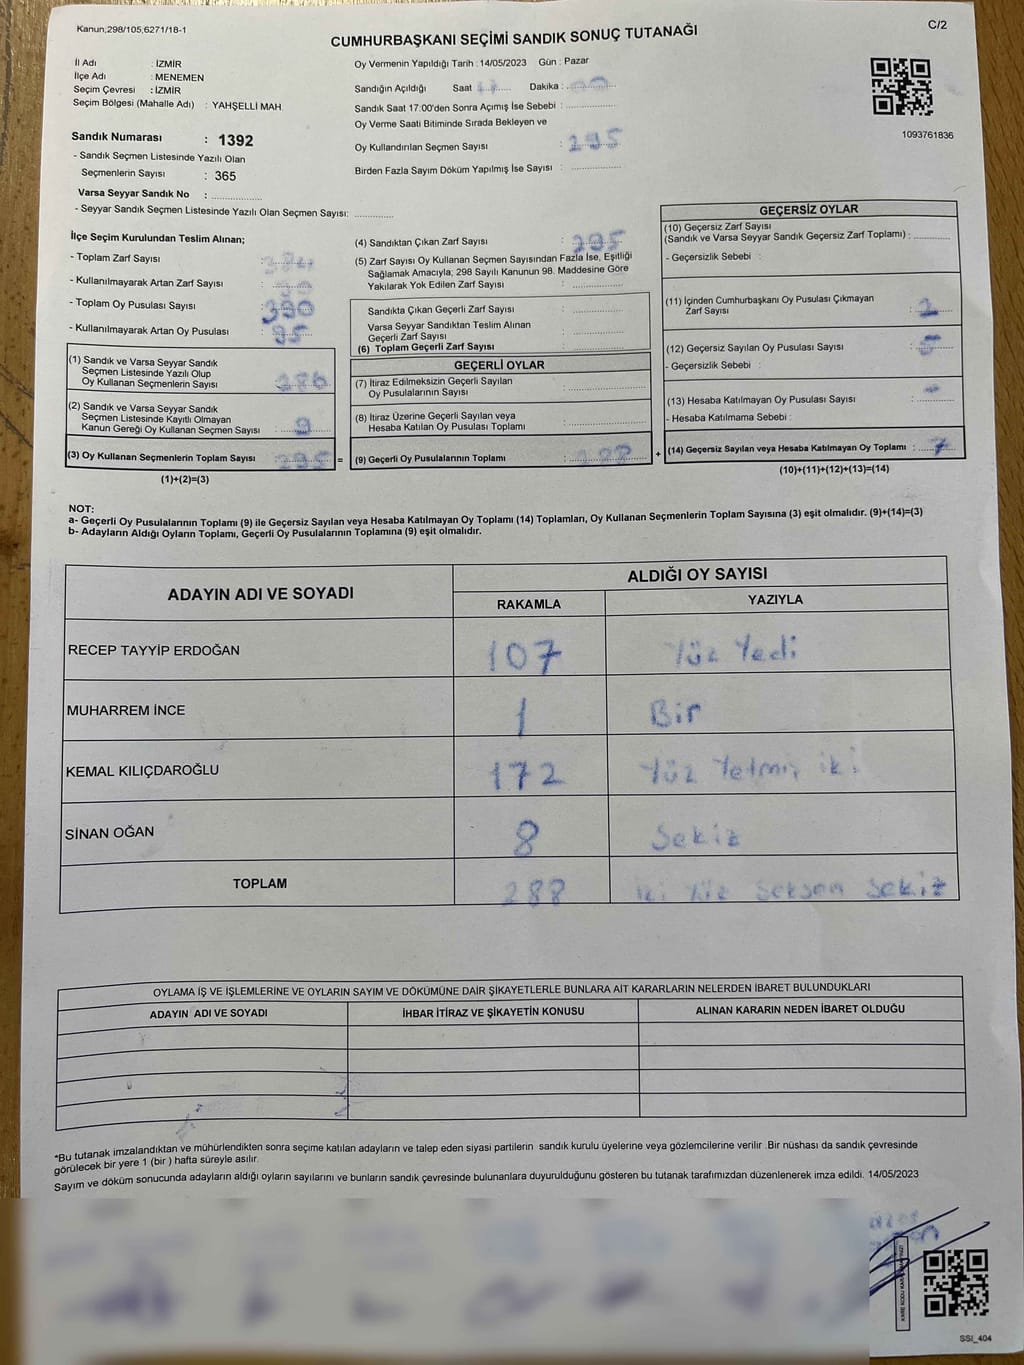 Kanun;298/105;6271/18-1
C/2
CUMHURBAŞKANI SEÇİMİ SANDIK SONUÇ TUTANAĞI
İl Adı : İZMİR
İlçe Adı : MENEMEN
Seçim Çevresi : İZMİR
Seçim Bölgesi (Mahalle Adı) : YAHŞELLİ MAH.
Sandık Numarası : 1392
- Sandık Seçmen Listesinde Yazılı Olan
Seçmenlerin Sayısı : 365
Varsa Seyyar Sandık No :
- Seyyar Sandık Seçmen Listesinde Yazılı Olan Seçmen Sayısı:
Oy Vermenin Yapıldığı Tarih :14/05/2023 Gün : Pazar
Sandığın Açıldığı Saat Dakika :
Sandık Saat 17:00'den Sonra Açımış İse Sebebi :
Oy Verme Saati Bitiminde Sırada Bekleyen ve
Oy Kullandırılan Seçmen Sayısı : 295
Birden Fazla Sayım Döküm Yapılmış İse Sayısı :
1093761836
İlçe Seçim Kurulundan Teslim Alınan;
- Toplam Zarf Sayısı :
- Kullanılmayarak Artan Zarf Sayısı :
- Toplam Oy Pusulası Sayısı : 390
- Kullanılmayarak Artan Oy Pusulası : 95
(1) Sandık ve Varsa Seyyar Sandık
Seçmen Listesinde Yazılı Olup
Oy Kullanan Seçmenlerin Sayısı : 286
(2) Sandık ve Varsa Seyyar Sandık
Seçmen Listesinde Kayıtlı Olmayan
Kanun Gereği Oy Kullanan Seçmen Sayısı : 9
(3) Oy Kullanan Seçmenlerin Toplam Sayısı : 295 =
(1)+(2)=(3)
(4) Sandıktan Çıkan Zarf Sayısı : 295
(5) Zarf Sayısı Oy Kullanan Seçmen Sayısından Fazla İse, Eşitliği
Sağlamak Amacıyla, 298 Sayılı Kanunun 98. Maddesine Göre
Yakılarak Yok Edilen Zarf Sayısı :
Sandıkta Çıkan Geçerli Zarf Sayısı :
Varsa Seyyar Sandıktan Teslim Alınan
Geçerli Zarf Sayısı :
(6) Toplam Geçerli Zarf Sayısı :
GEÇERLİ OYLAR
(7) İtiraz Edilmeksizin Geçerli Sayılan
Oy Pusulalarının Sayısı :
(8) İtiraz Üzerine Geçerli Sayılan veya
Hesaba Katılan Oy Pusulası Toplamı :
(9) Geçerli Oy Pusulalarının Toplamı : 288 +
GEÇERSİZ OYLAR
(10) Geçersiz Zarf Sayısı
(Sandık ve Varsa Seyyar Sandık Geçersiz Zarf Toplamı) :
- Geçersizlik Sebebi :
(11) İçinden Cumhurbaşkanı Oy Pusulası Çıkmayan
Zarf Sayısı :
(12) Geçersiz Sayılan Oy Pusulası Sayısı : 5
- Geçersizlik Sebebi :
(13) Hesaba Katılmayan Oy Pusulası Sayısı : -
- Hesaba Katılmama Sebebi :
(14) Geçersiz Sayılan veya Hesaba Katılmayan Oy Toplamı : 7
(10)+(11)+(12)+(13)=(14)
NOT:
a- Geçerli Oy Pusulalarının Toplamı (9) ile Geçersiz Sayılan veya Hesaba Katılmayan Oy Toplamı (14) Toplamları, Oy Kullanan Seçmenlerin Toplam Sayısına (3) eşit olmalıdır. (9)+(14)=(3)
b- Adayların Aldığı Oyların Toplamı, Geçerli Oy Pusulalarının Toplamına (9) eşit olmalıdır.
ADAYIN ADI VE SOYADI
ALDIĞI OY SAYISI
RAKAMLA YAZIYLA
RECEP TAYYİP ERDOĞAN 107 Yüz Yedi
MUHARREM İNCE 1 Bir
KEMAL KILIÇDAROĞLU 172 Yüz Yetmiş iki
SİNAN OĞAN 8 Sekiz
TOPLAM 288 iki Yüz Seksen Sekiz
OYLAMA İŞ VE İŞLEMLERİNE VE OYLARIN SAYIM VE DÖKÜMÜNE DAİR ŞİKAYETLERLE BUNLARA AİT KARARLARIN NELERDEN İBARET BULUNDUKLARI
ADAYIN ADI VE SOYADI İHBAR İTİRAZ VE ŞİKAYETİN KONUSU ALINAN KARARIN NEDEN İBARET OLDUĞU
*Bu tutanak imzalandıktan ve mühürlendikten sonra seçime katılan adayların ve talep eden siyasi partilerin sandık kurulu üyelerine veya gözlemcilerine verilir .Bir nüshası da sandık çevresinde
görülecek bir yere 1 (bir ) hafta süreyle asılır.
Sayım ve döküm sonucunda adayların aldığı oyların sayılarını ve bunların sandık çevresinde bulunanlara duyurulduğunu gösteren bu tutanak tarafımızdan düzenlenerek imza edildi. 14/05/2023
SSI_404